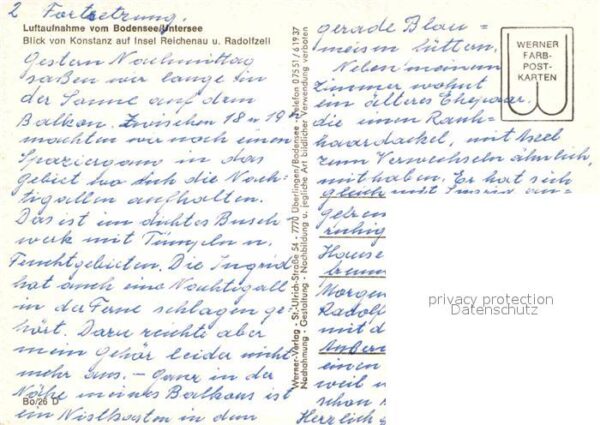 2 Fortsetzung.
Luftaufnahme vom Bodensee/Untersee
Blick von Konstanz auf Insel Reichenau u. Radolfzell
Gestern Nachmittag
saßen wir lange in
der Sonne auf dem
Balkon. Zwischen 18 u 19 h
machten wir noch einen
Spaziergang in das
Gebiet wo sich die Nach-
tigallen aufhalten.
Das ist im dichten Busch
werk mit Tümpeln u.
Feuchtgebieten. Die Ingrid
hat auch eine Nachtigall
in der Ferne schlagen ge
hört. Dazu reichte aber
mein Gehör leider nicht
mehr aus. – Ganz in der
Nähe meines Balkons ist
ein Nistkasten in dem
Bo/26 D
Werner-Verlag - St.-Ulrich-Straße 54 - 7770 Überlingen/Bodensee - Telefon 07551/61937
Nachahmung - Gestaltung - Nachbildung u. jegliche Art bildlicher Verwendung verboten
gerade Blau-
meisen füttern.
Neben meinem
Zimmer wohnt
ein älteres Ehepaar,
die einen Rauh-
haardackel, mit Axel
zum Verwechseln ähnlich,
mit haben. Er hat sich
gleich mit Ingrid an-
Hause
Morgen
Radol
mit d
Außer
einen
weil
schon
Herzlich
WERNER
FARB-
POST-
KARTEN
privacy protection
Datenschutz